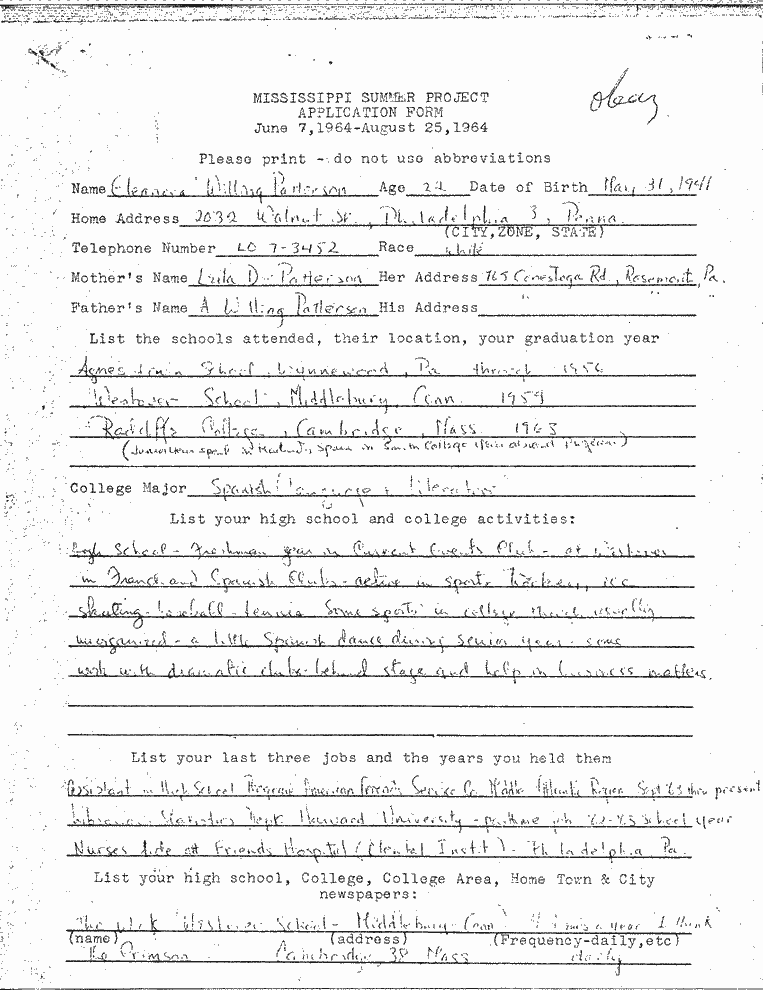 okay
MISSISSIPPI SUMMER PROJECT
APPLICATION FORM
June 7,1964-August 25,1964
Please print - do not use abbreviations
Name Eleanora Willing Patterson Age 22 Date of Birth May 31, 1941
Home Address 2032 Walnut St., Philadelphia 3, Penna.
(CITY,ZONE, STATE)
Telephone Number LO 7-3452 Race white
Mother's Name D. Patterson Her Address 765 Conestoga Rd., Rosemont, Pa.
Father's Name A Willing Patterson His Address " " "
List the schools attended, their location, your graduation year
Agnes Irwin School, Wynnewood, Pa through 1956
Westover School, Middlebury, Conn. 1959
Radcliffe College, Cambridge, Mass 1963
(Junior Year spent in Madrid, Spain in Smith College Year abroad Program)
College Major Spanish language & literature
List your high school and college activities:
High School - Freshman year in Current Events Club - at Westover
in French and Spanish Clubs - active in sports hockey, ice
skating - baseball - tennis. Some sports in college though usually
unorganized - a little Spanish dance during senior year - some
work with dramatic clubs - behind stage and help in business matters.
List your last three jobs and the years you held them
Assistant in High School Program American Friends Service Co. Middle Atlantic Region Sept '63 thru present
Statistics Dept. Harvard University - parttime job '62-'63 school year
Nurses Aide at Friends Hospital (Mental Instit) - Philadelphia Pa.
List your high school, College, College Area, Home Town & City
newspapers:
The Westover School - Middlebury Conn a year I think
(name) (address) (Frequency-daily,etc)
The Crimson Cambridge 38 Mass daily